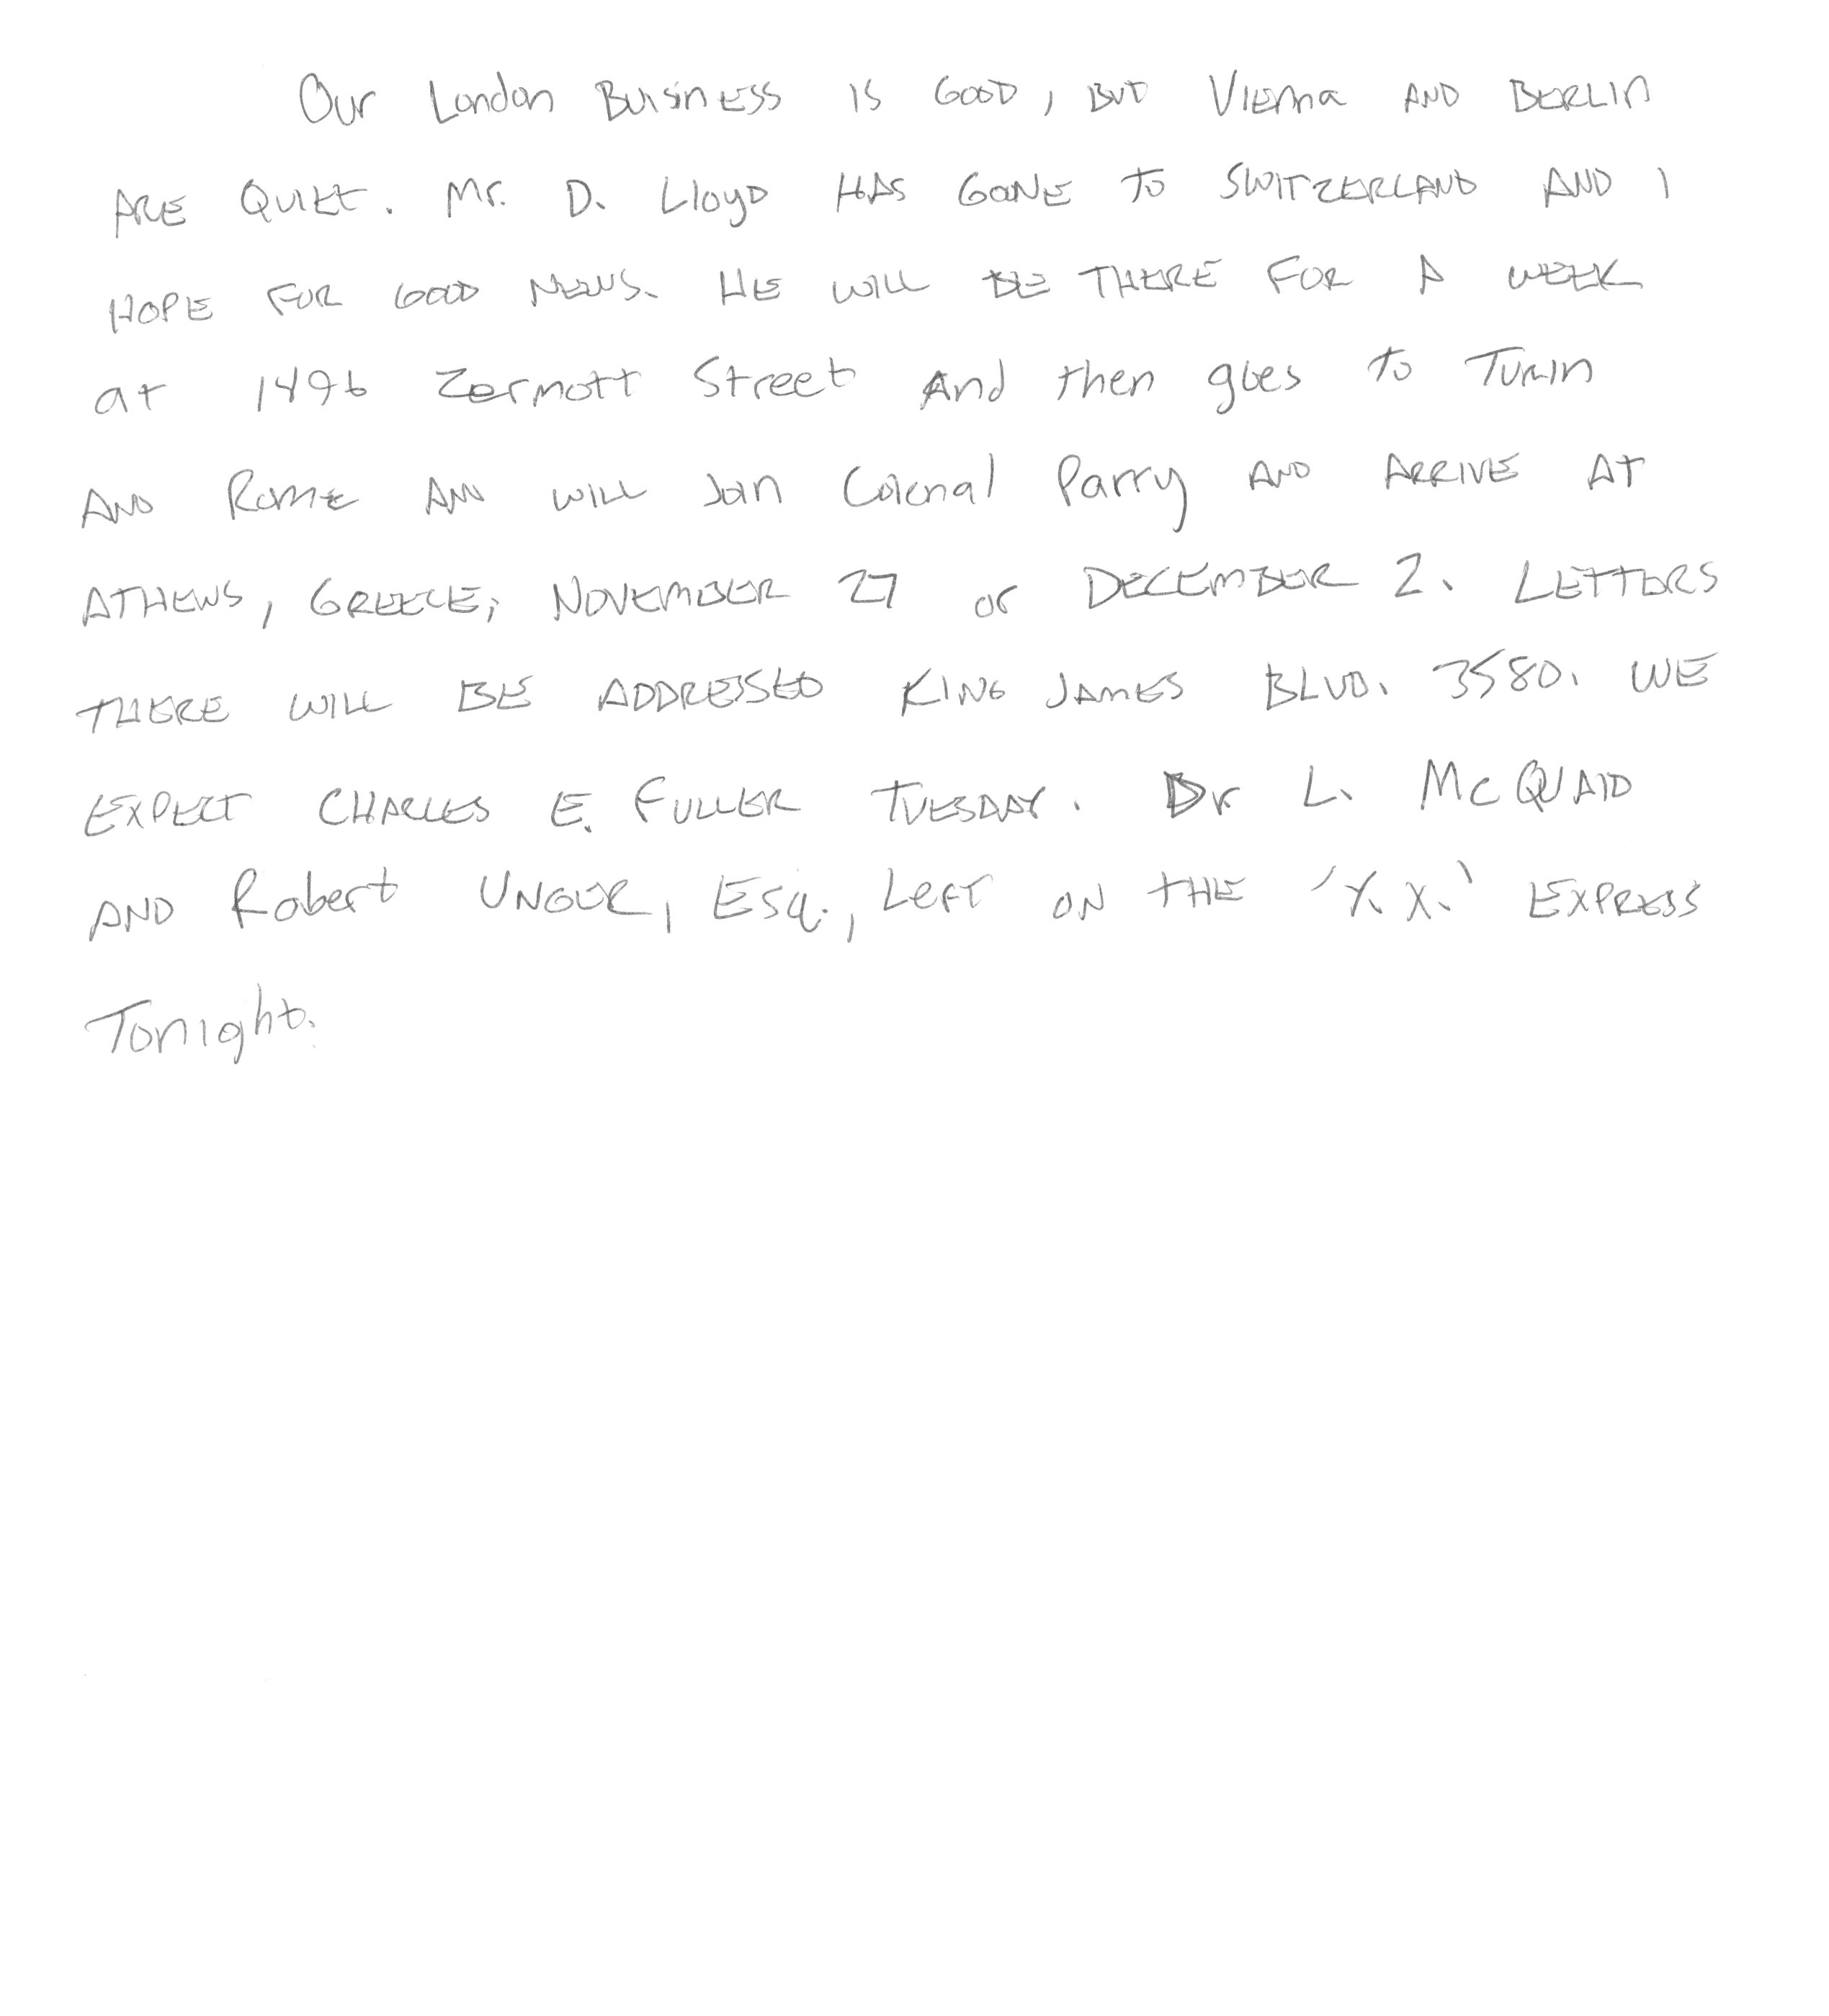 Our London Buisness is Good, But Vienna AND BERLIN
ARE QUIET. Mr. D. Lloyd HAS GONE TO SWITZERLAND AND I
HOPE FOR GOOD NEWS. HE WILL BE THERE FOR A WEEK
at 1496 Zermott Street And then goes To Turin
AND ROME AND WILL Join Colonal Parry AND ARRIVE AT
ATHENS, GREECE, NOVEMBER 27 or DECEMBER 2. LETTERS
THERE WILL BE ADDRESSED KING JAMES BLVD. 3580. WE
EXPECT CHARLES E. FULLER TUESDAY. Dr L. McQUAID
AND Robert UNGUR, ESq., Left ON THE 'Y.X.' EXPRESS
Tonight.